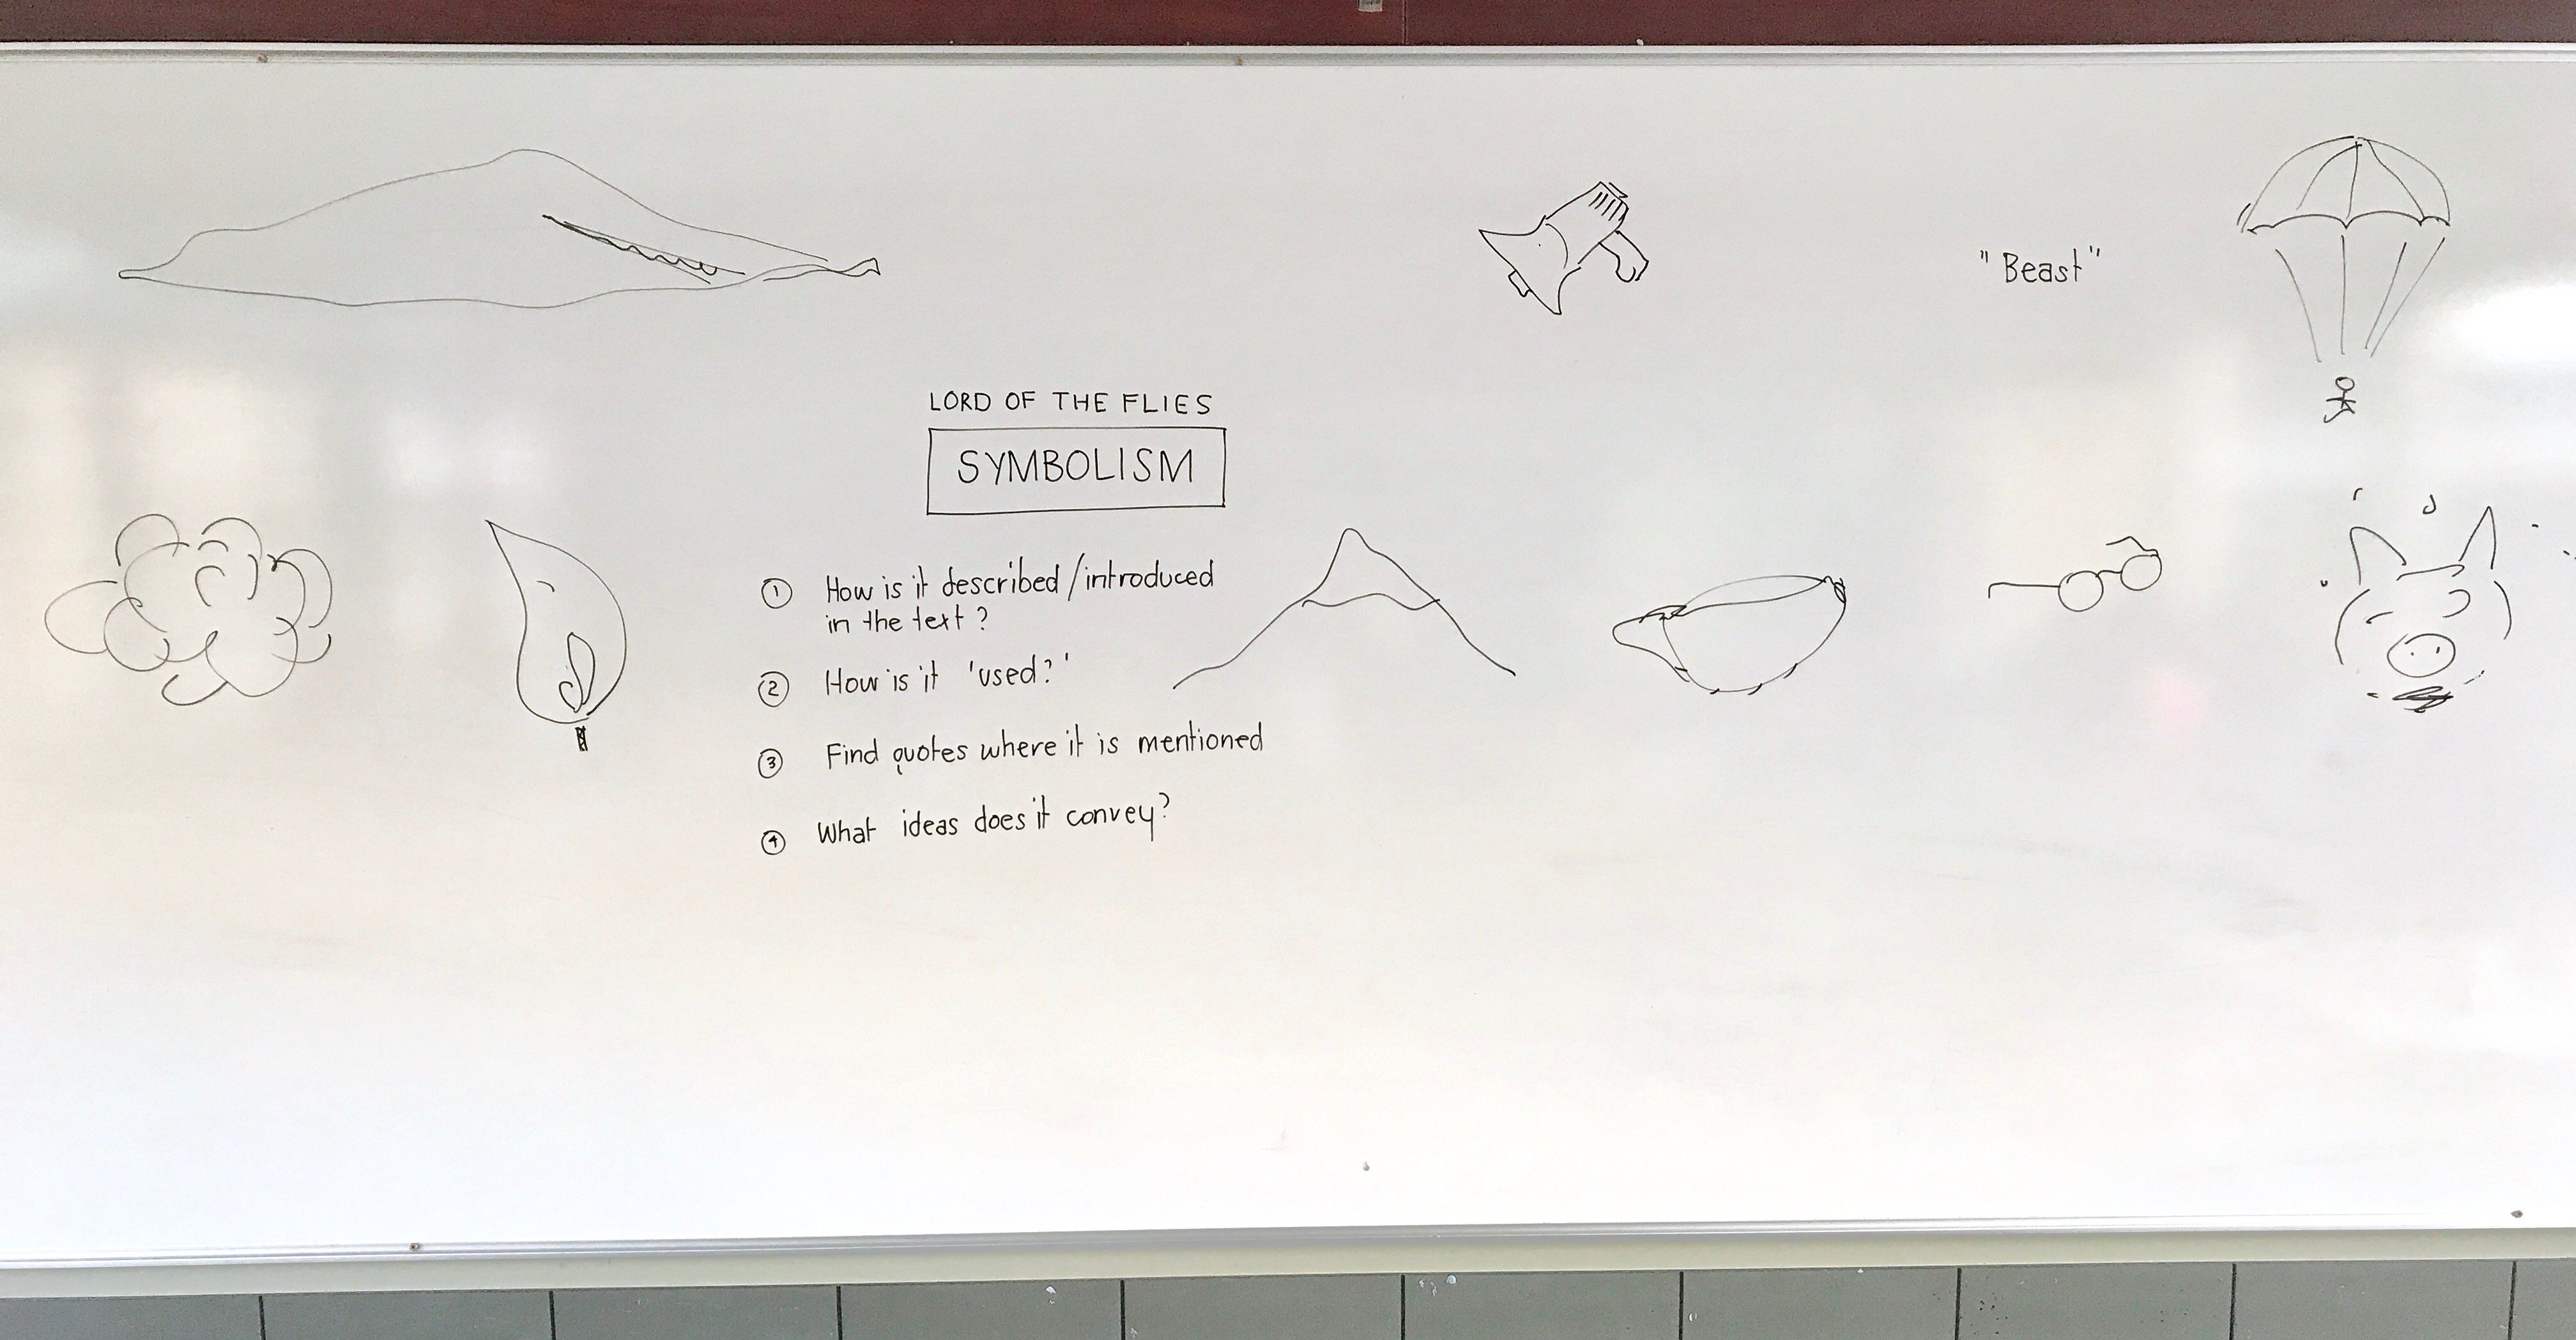 "Beast"
LORD OF THE FLIES
SYMBOLISM
① How is it described/introduced
in the text?
② How is it 'used?'
③ Find quotes where it is mentioned
④ What ideas does it convey?